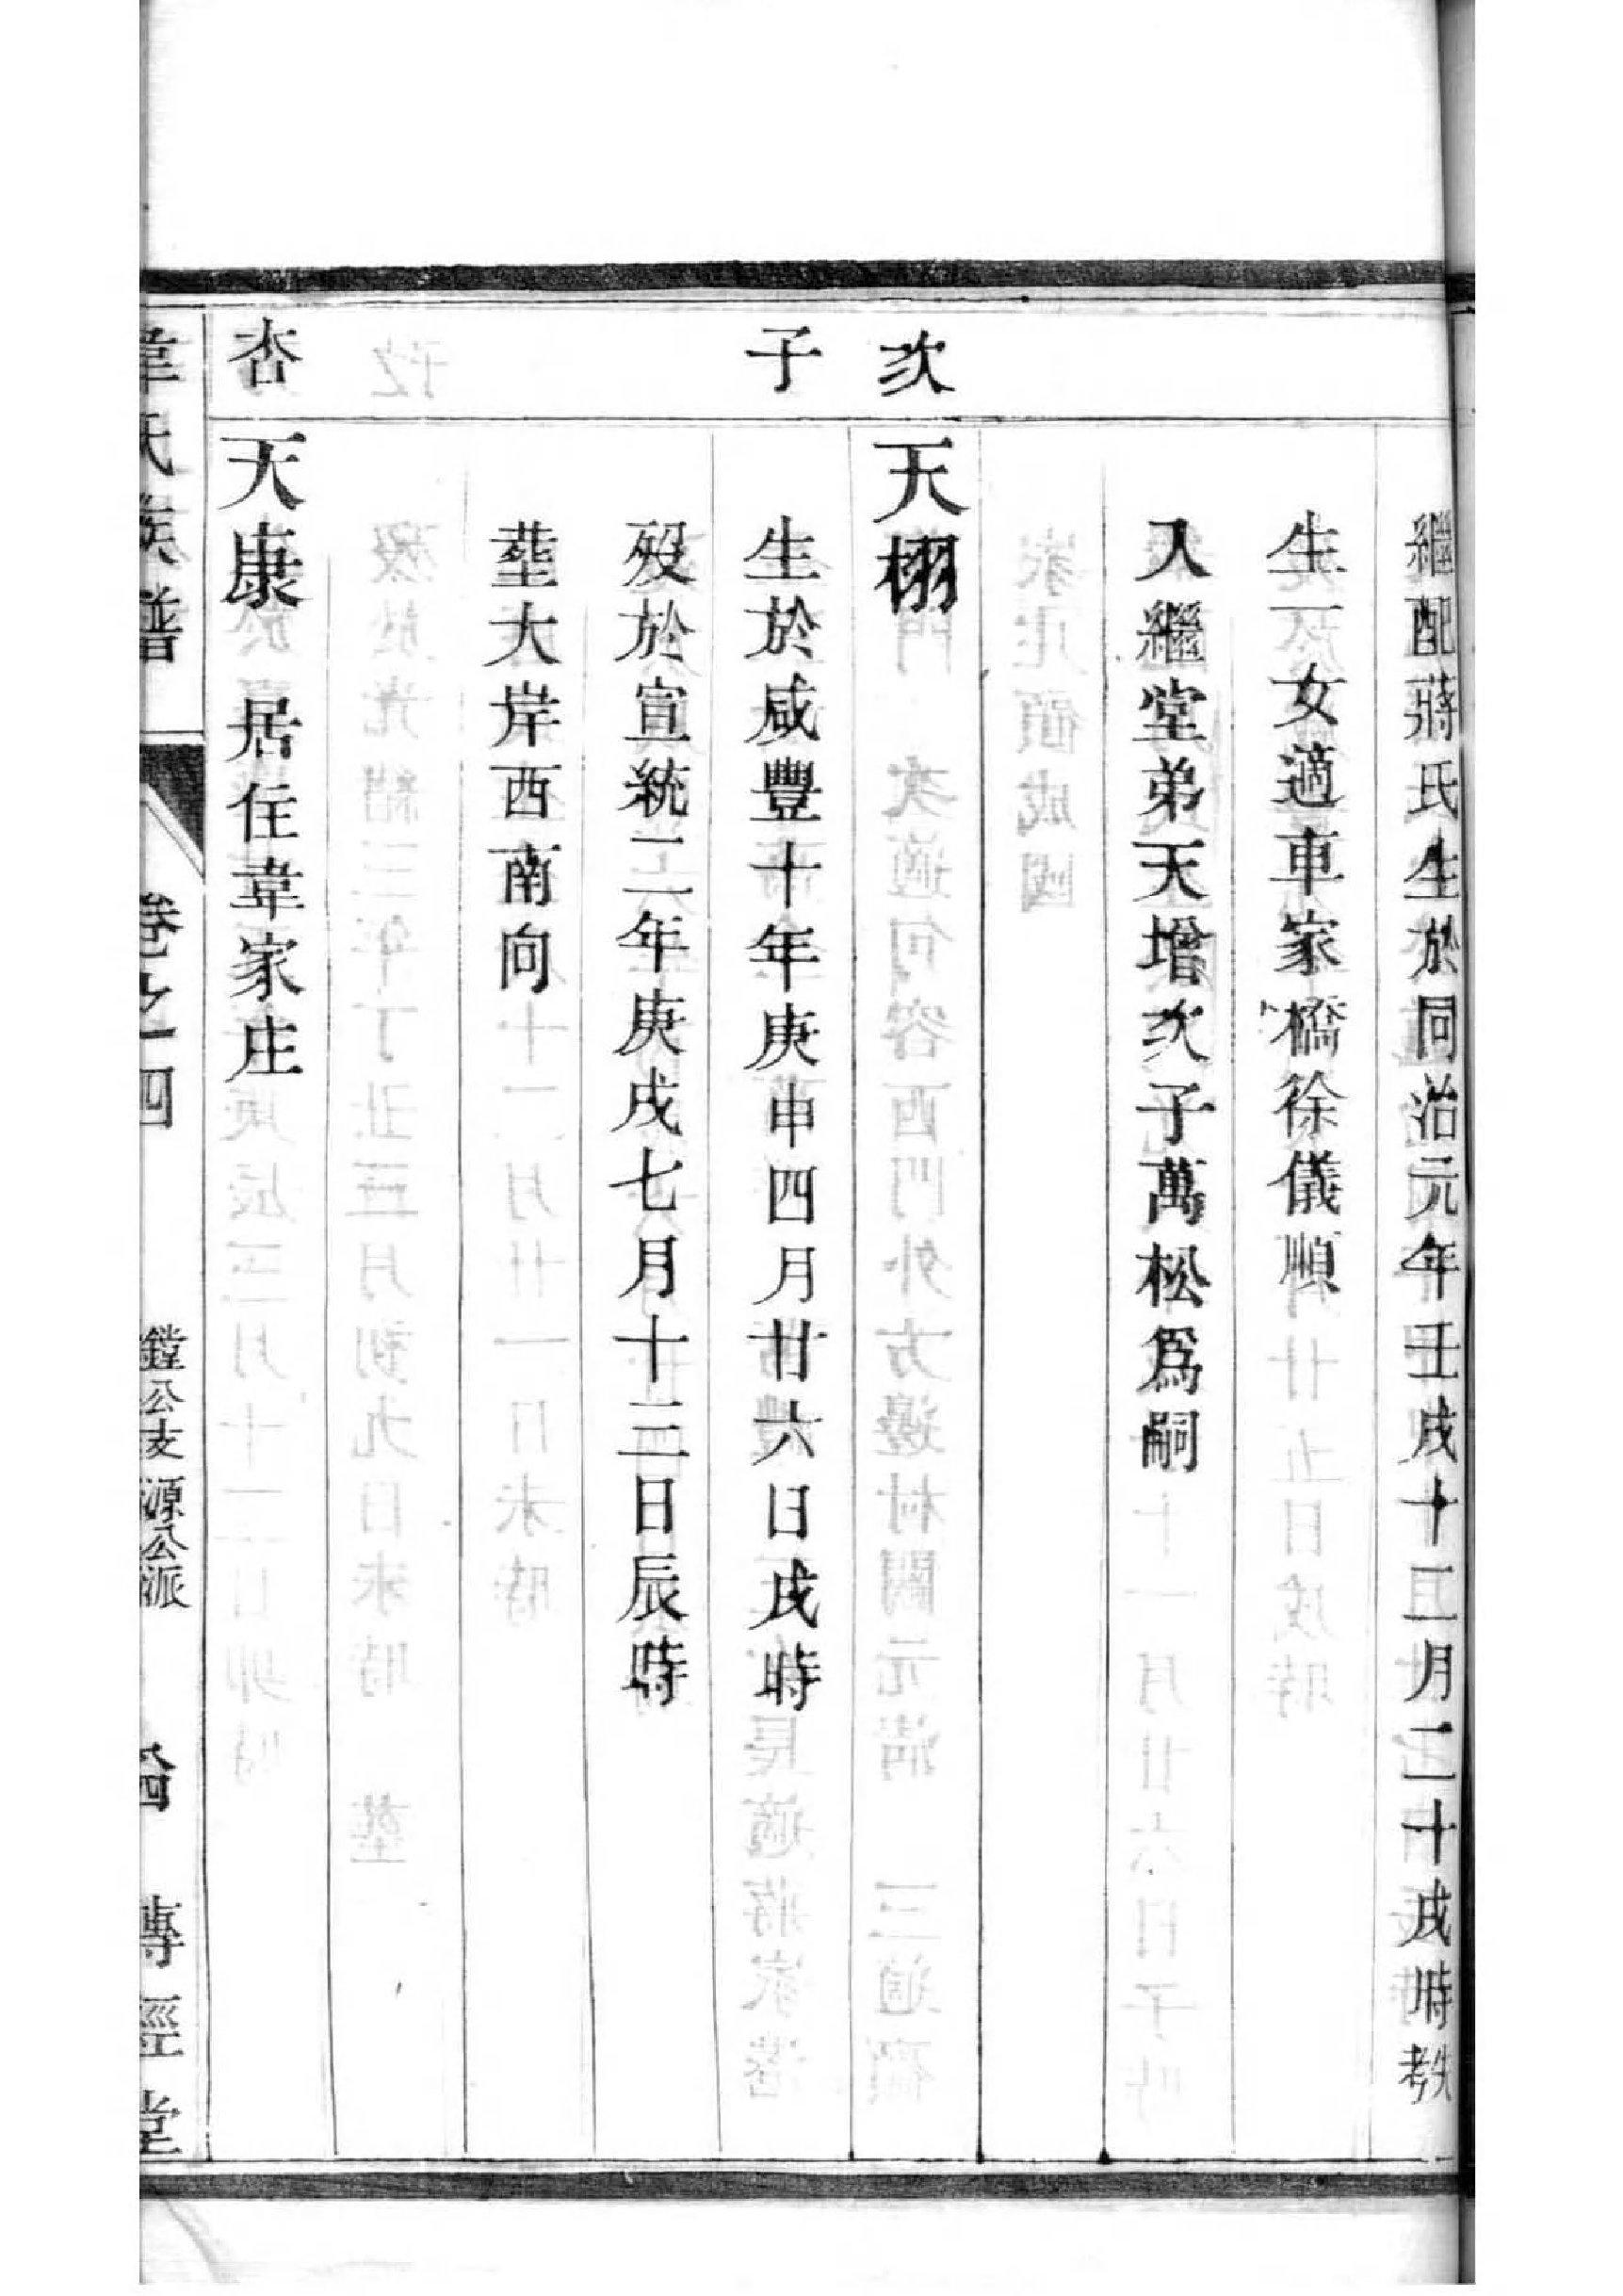 繼配蔣氏生於同治元年壬戌十二月二十戌時
生一女適車家橋徐儀順
入繼堂弟天增次子萬松爲嗣
次
天栩
子
生於咸豐十年庚申四月廿六日戌時
歿於宣統二年庚戌七月十三日辰時
塟大岸西南向
杏
天康 居住韋家庄
韋氏族譜 卷之四 鏜公支 源公派 傳經堂